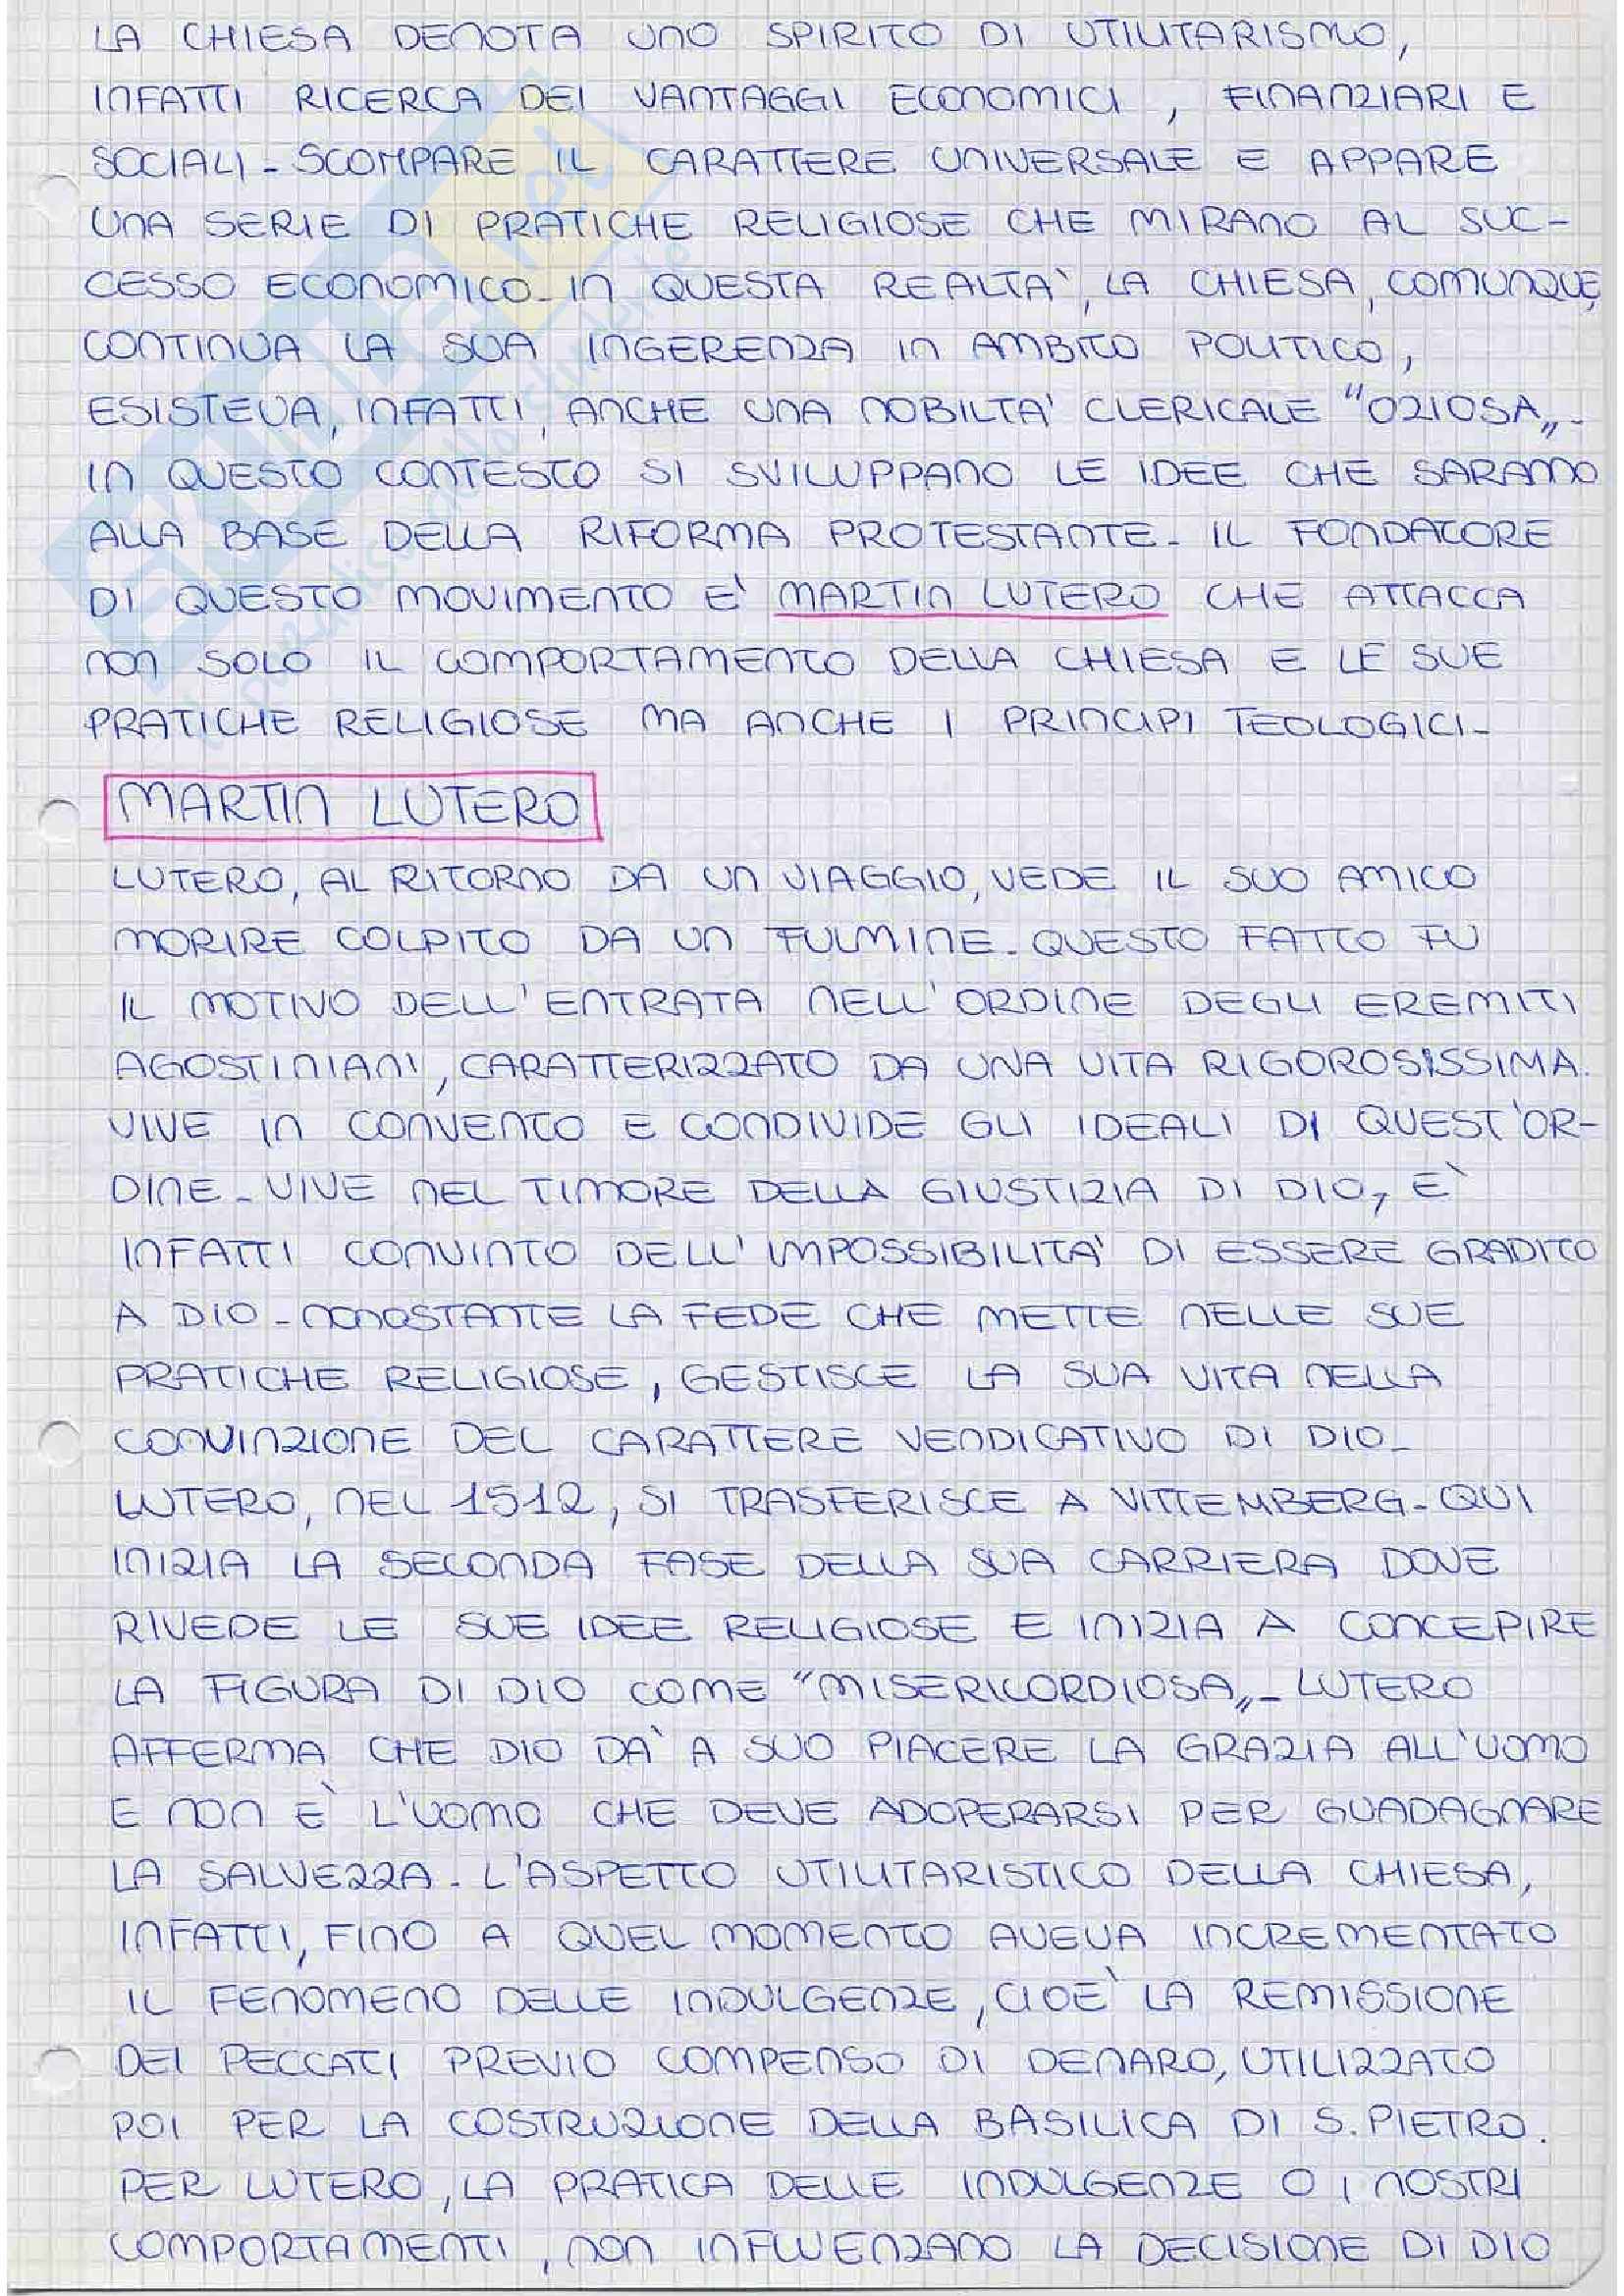 LA CHIESA DENOTA UNO SPIRITO DI UTILITARISMO,
INFATTI RICERCA DEI VANTAGGI ECONOMICI, FINANZIARI E
SOCIALI - SCOMPARE IL CARATTERE UNIVERSALE E APPARE
UNA SERIE DI PRATICHE RELIGIOSE CHE MIRANO AL SUC-
CESSO ECONOMICO - IN QUESTA REALTA', LA CHIESA, COMUNQUE,
CONTINUA LA SUA INGERENZA IN AMBITO POLITICO,
ESISTEVA, INFATTI, ANCHE UNA NOBILTA' CLERICALE "OZIOSA„ -
IN QUESTO CONTESTO SI SVILUPPANO LE IDEE CHE SARANNO
ALLA BASE DELLA RIFORMA PROTESTANTE - IL FONDATORE
DI QUESTO MOVIMENTO E' MARTIN LUTERO CHE ATTACCA
NON SOLO IL COMPORTAMENTO DELLA CHIESA E LE SUE
PRATICHE RELIGIOSE MA ANCHE I PRINCIPI TEOLOGICI -
MARTIN LUTERO
LUTERO, AL RITORNO DA UN VIAGGIO, VEDE IL SUO AMICO
MORIRE COLPITO DA UN FULMINE - QUESTO FATTO FU
IL MOTIVO DELL'ENTRATA NELL'ORDINE DEGLI EREMITI
AGOSTINIANI, CARATTERIZZATO DA UNA VITA RIGOROSISSIMA.
VIVE IN CONVENTO E CONDIVIDE GLI IDEALI DI QUEST'OR-
DINE - VIVE NEL TIMORE DELLA GIUSTIZIA DI DIO, E'
INFATTI CONVINTO DELL'IMPOSSIBILITA' DI ESSERE GRADITO
A DIO - NONOSTANTE LA FEDE CHE METTE NELLE SUE
PRATICHE RELIGIOSE, GESTISCE LA SUA VITA NELLA
CONVINZIONE DEL CARATTERE VENDICATIVO DI DIO -
LUTERO, NEL 1512, SI TRASFERISCE A VITTEMBERG - QUI
INIZIA LA SECONDA FASE DELLA SUA CARRIERA DOVE
RIVEDE LE SUE IDEE RELIGIOSE E INIZIA A CONCEPIRE
LA FIGURA DI DIO COME "MISERICORDIOSA„ - LUTERO
AFFERMA CHE DIO DA' A SUO PIACERE LA GRAZIA ALL'UOMO
E NON E' L'UOMO CHE DEVE ADOPERARSI PER GUADAGNARE
LA SALVEZZA - L'ASPETTO UTILITARISTICO DELLA CHIESA,
INFATTI, FINO A QUEL MOMENTO AVEVA INCREMENTATO
IL FENOMENO DELLE INDULGENZE, CIOE' LA REMISSIONE
DEI PECCATI PREVIO COMPENSO DI DENARO, UTILIZZATO
POI PER LA COSTRUZIONE DELLA BASILICA DI S. PIETRO.
PER LUTERO, LA PRATICA DELLE INDULGENZE O I NOSTRI
COMPORTAMENTI, NON INFLUENZANO LA DECISIONE DI DIO